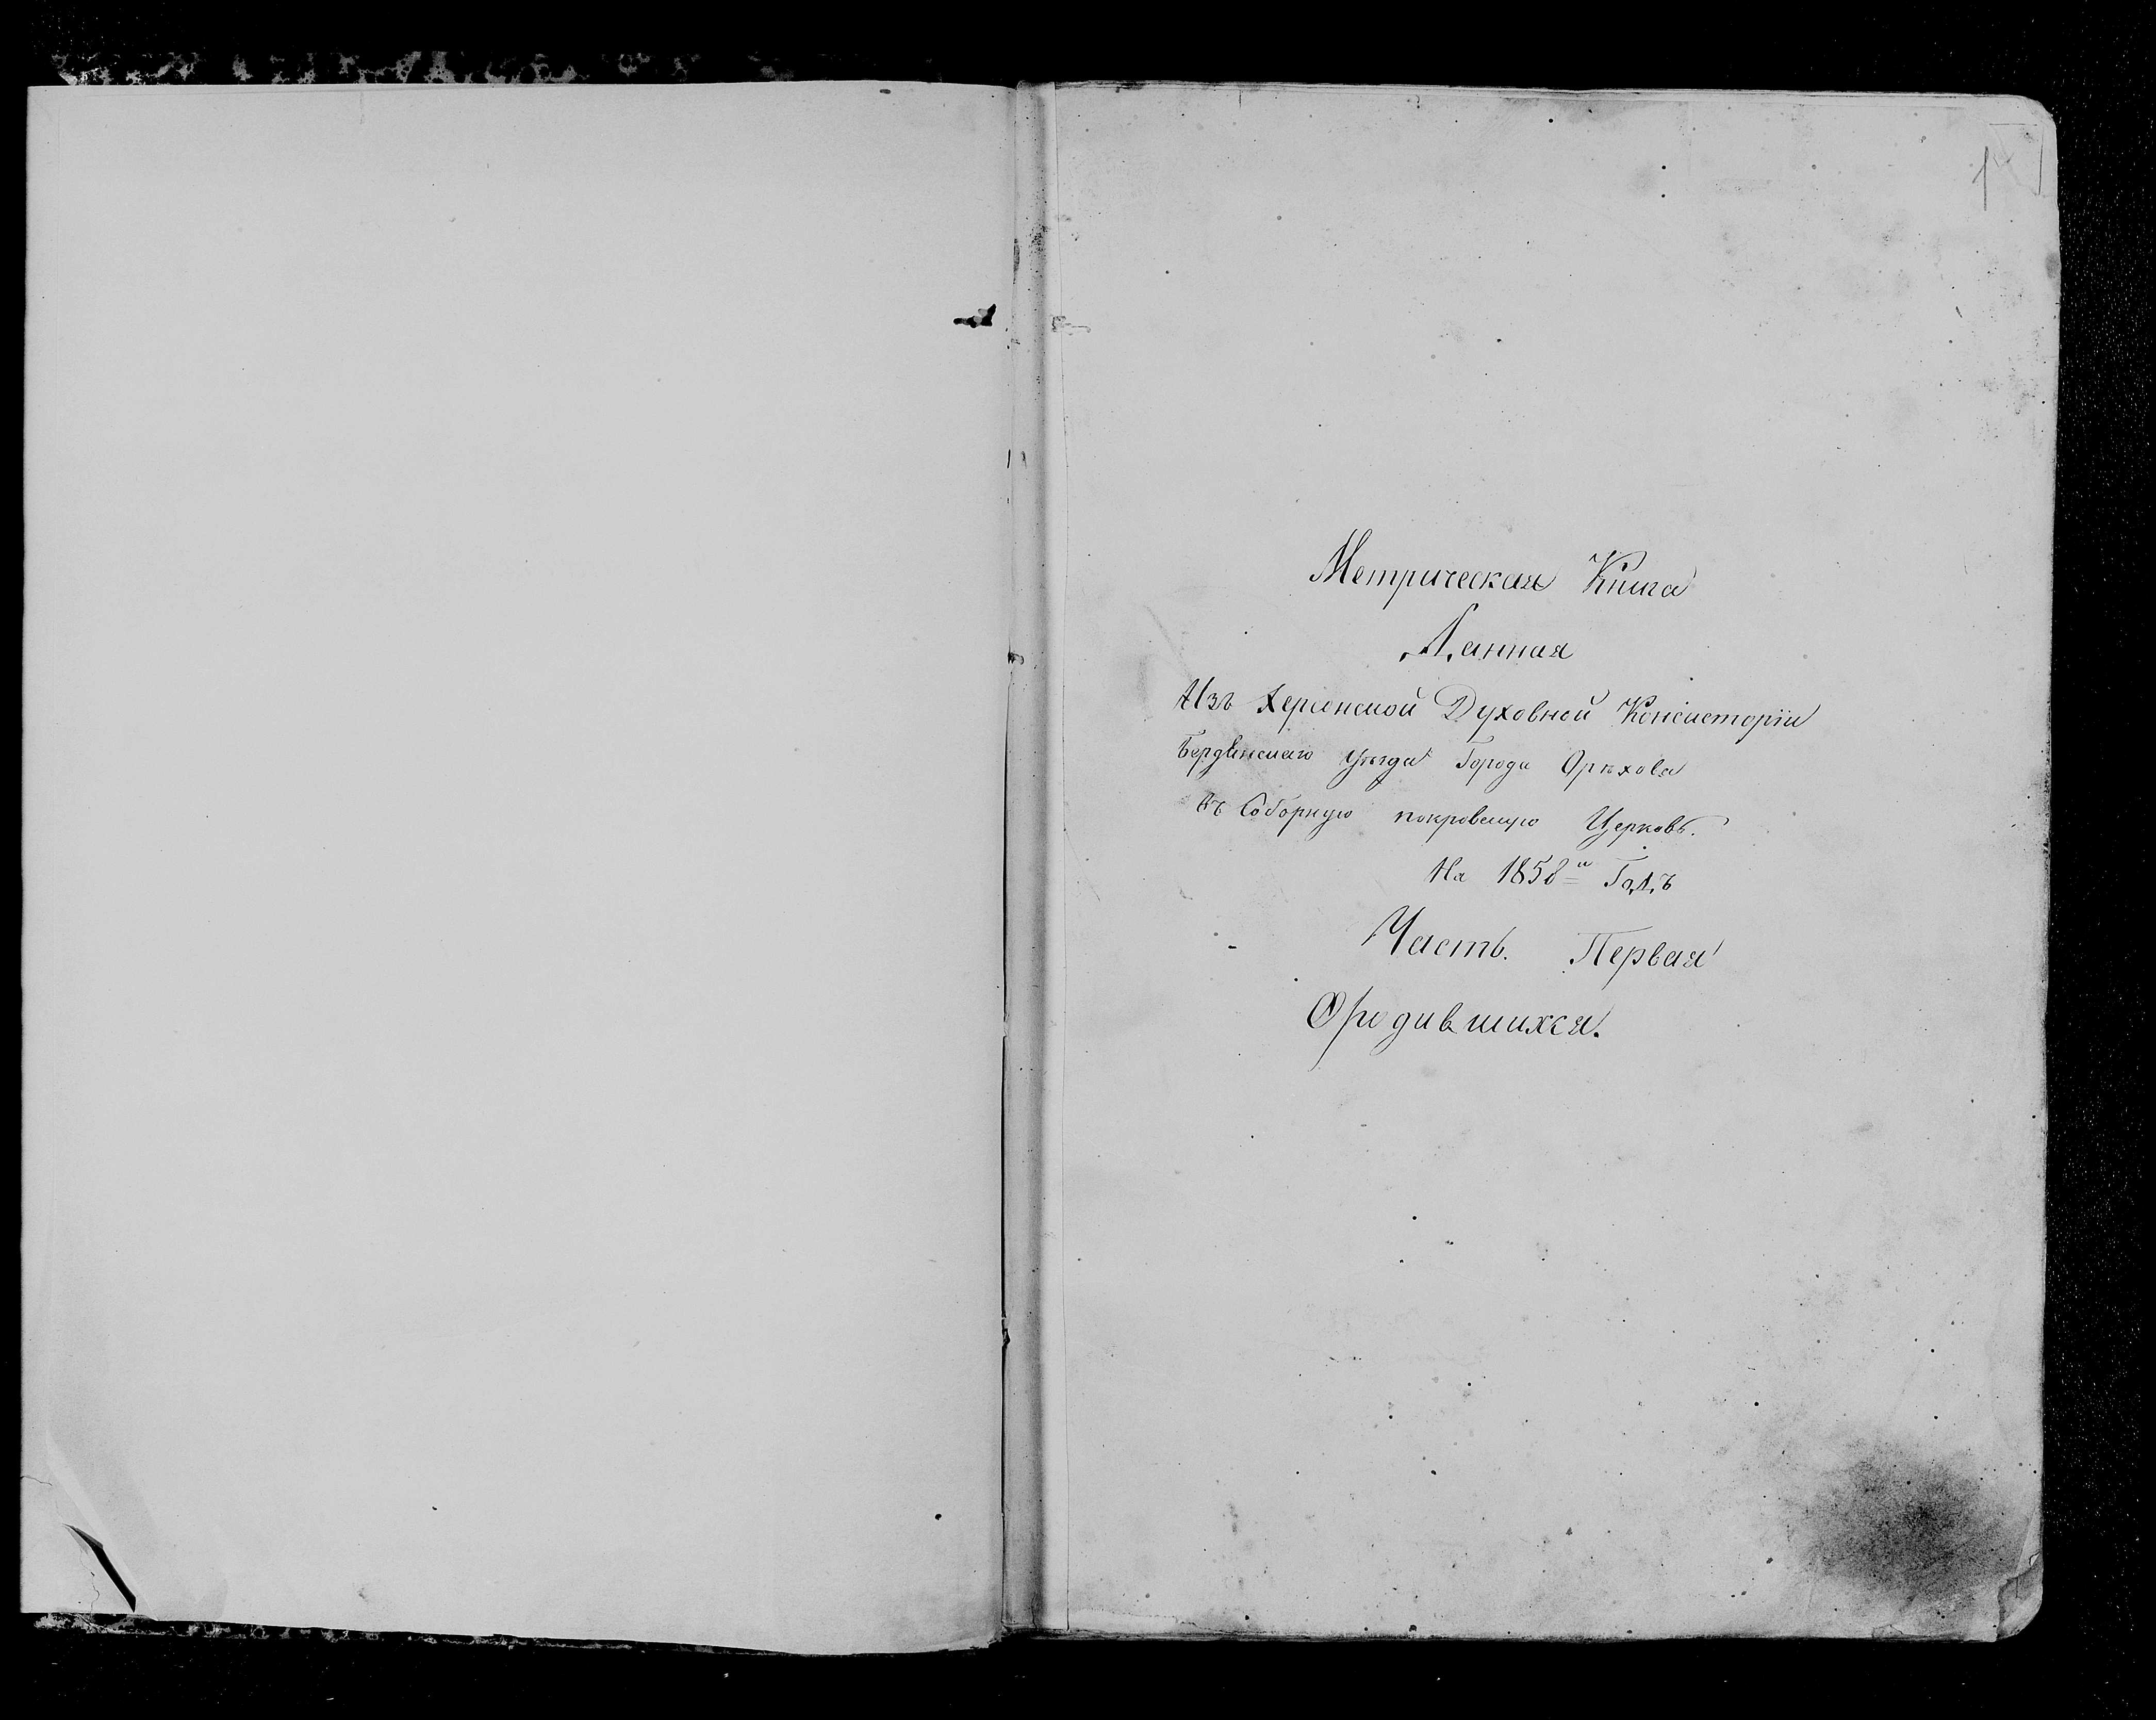 1
Метрическая Книга
Данная
Изъ Херсонской Духовной Консисторіи
Бердянскаго уѣзда Города Орѣхова
въ Соборную покровскую Церковь.
На 1858й Годъ
Часть. Первая
Ородившихся.